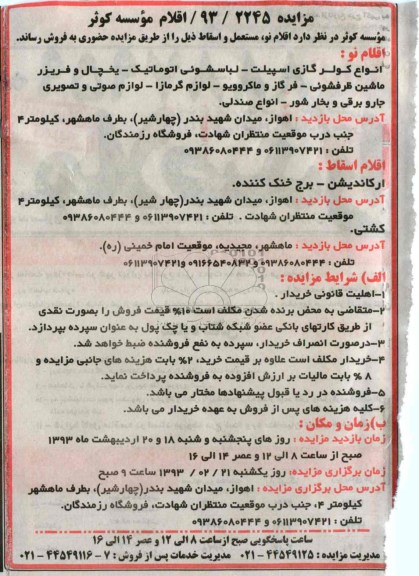 مزایده ۲۲۴۵ / ۹۳/ اقلام مؤسسه کوثر
مؤسسه کوثر در نظر دارد اقلام نو، مستعمل و اسقاط ذیل را از طریق مزایده حضوری به فروش رساند.
اقلام نو :
انواع کولر گازی اسپیلت - لباسشوئی اتوماتیک - یخچال و فریزر
ماشین ظرفشوئی - فر گاز و ماکروویو - لوازم گرمازا - لوازم صوتی و تصویری
جارو برقی و بخار شور - انواع صندلی.
آدرس محل بازدید : اهواز، میدان شهید بندر (چهارشیر)، بطرف ماهشهر، کیلومتر۴
جنب درب موقعیت منتظران شهادت، فروشگاه رزمندگان.
تلفن : ۰۶۱۱۳۹۰۷۴۲۱ و ۰۹۳۸۶۰۸۰۴۴۴
اقلام اسقاط :
ارکاندیشن - برج خنک کننده.
آدرس محل بازدید : اهواز، میدان شهید بندر(چهار شیر)، بطرف ماهشهر، کیلومتر۴
موقعیت منتظران شهادت . تلفن : ۰۶۱۱۳۹۰۷۴۲۱ و ۰۹۳۸۶۰۸۰۴۴۴
کشتی.
آدرس محل بازدید : ماهشهر، مجیدیه، موقعیت امام خمینی (ره).
تلفن : ۰۹۳۸۶۰۸۰۴۴۴ و۰۹۱۶۶۵۴۰۸۳۲ و۰۶۱۱۳۹۰۷۴۲۱
الف) شرایط مزایده :
۱-اهلیت قانونی خریدار .
۲-متقاضی به محض برنده شدن مکلف است ۱۰% قیمت فروش را بصورت نقدی
از طریق کارتهای بانکی عضو شبکه شتاب و یا چک پول به عنوان سپرده بپردازد.
۳-درصورت انصراف خریدار، سپرده به نفع فروشنده ضبط خواهد شد.
۴-خریدار مکلف است علاوه بر قیمت خرید، ۲% بابت هزینه های جانبی مزایده و
۸ % بابت مالیات بر ارزش افزوده به فروشنده پرداخت نماید.
۵-فروشنده در رد یا قبول پیشنهادها مختار می باشد.
۶-کلیه هزینه های پس از فروش به عهده خریدار می باشد.
ب)زمان و مکان :
زمان بازدید مزایده : روز های پنجشنبه و شنبه ۱۸ و ۲۰ اردیبهشت ماه ۱۳۹۳
صبح از ساعت ۸ الی ۱۲ و عصر ۱۴ الی ۱۶
زمان برگزاری مزایده: روز یکشنبه ۲۱ / ۰۲ / ۱۳۹۳ ساعت ۹ صبح
آدرس محل برگزاری مزایده : اهواز، میدان شهید بندر(چهارشیر)، بطرف ماهشهر
کیلومتر ۴، جنب درب موقعیت منتظران شهادت، فروشگاه رزمندگان.
تلفن : ۰۶۱۱۳۹۰۷۴۲۱ و ۰۹۳۸۶۰۸۰۴۴۴
ساعت پاسخگویی صبح ازساعت ۸ الی ۱۲ و عصر ۱۴ الی ۱۶
مدیریت مزایده : ۴۴۵۴۹۱۲۵ - ۰۲۱ مدیریت خدمات پس از فروش : ۷ - ۴۴۵۴۹۱۱۶ - ۰۲۱